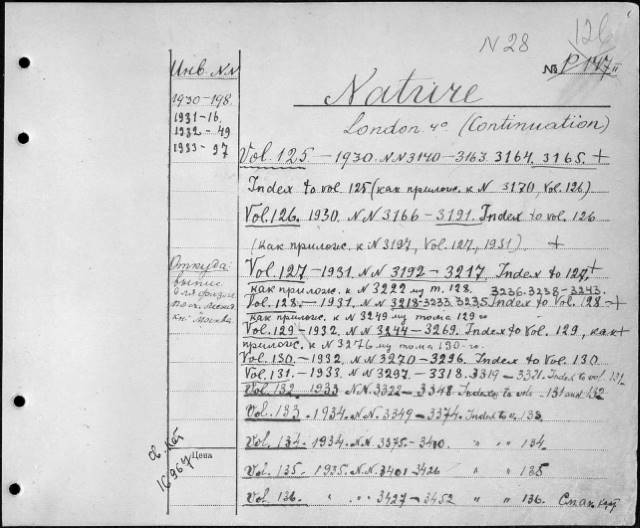 N 28
126
№ P 147 II
Инв. N.N
1930-198.
1931-16.
1932-49
1933-97
Nature
London 4° (Continuation)
Vol. 125 - 1930. NN 3140-3163. 3164. 3165. +
Index to vol. 125 (как прилож. к N 3170, Vol. 126)
Vol. 126. 1930. NN 3166-3191. Index to vol. 126
(как прилож. к N 3197, Vol. 127, 1931) +
Откуда:
выпис
для физич
Москва
Vol. 127 - 1931. NN 3192-3217. Index to 127. +
как прилож. к N 3222 из т. 128. 3236-3238-3243.
Vol. 128. - 1931. NN 3218-3233 3235 Index to Vol. 128 - +
как прилож. к N 3249 из тома 129го
Vol. 129 - 1932. NN 3244-3269. Index to Vol. 129, как +
прилож. к N 3276 из тома 130-го.
Vol. 130. - 1932, NN 3270-3296. Index to Vol. 130
Vol. 131. - 1933. NN 3297. - 3318. 3319 - 3321. Index to vol. 131.
Vol. 132 1933 NN. 3322 - 3348 Index to vols 131 and 132
Vol. 133. 1934. NN. 3349 - 3374. Index to v. 133.
Vol. 134. 1934. NN. 3375. - 3400. " " 134.
Цена
16967
Vol. 135. 1935. NN. 3401 - 3426 " " 135
Vol. 136. " " " 3427 - 3452 " " 136.